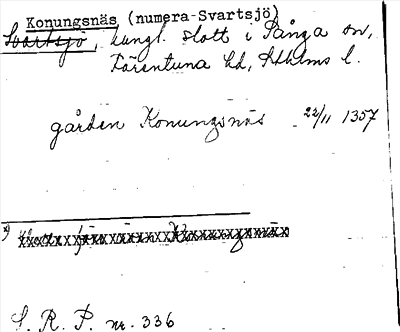 Konungsnäs (numera Svartsjö)
Svartsjö, kungl. slott i Sånga sn,
Färentuna hd, Sthlms l.
gården Konungsnäs 22/11 1357
x)
S. R. P. nr. 336